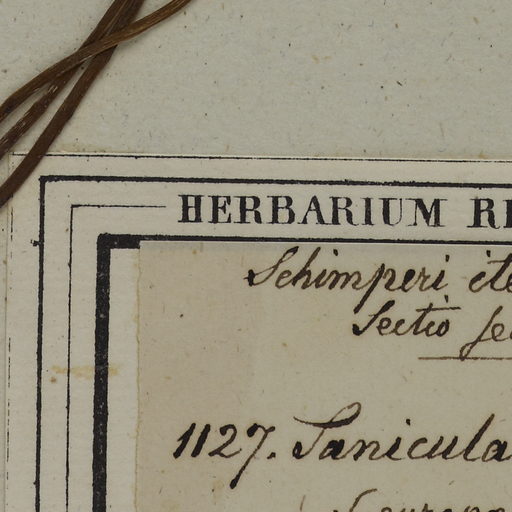 HERBARIUM
Schimperi
Sectio
1127. Sanicula